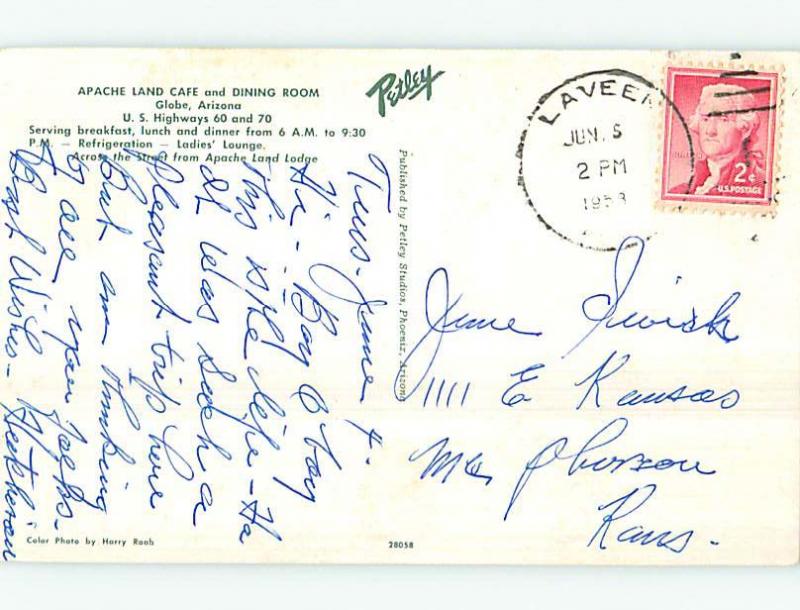 APACHE LAND CAFE and DINING ROOM
Globe, Arizona
U. S. Highways 60 and 70
Serving breakfast, lunch and dinner from 6 A.M. to 9:30
P.M. — Refrigeration — Ladies' Lounge.
Across the Street from Apache Land Lodge
Petley
Published by Petley Studios, Phoenix, Arizona
LAVEEN
JUN. 5
2 PM
1958
2¢
U.S. POSTAGE
Tues. June 4.
Hi. Boy O boy
this is the life - Ha
It was such a
pleasant trip here
But am thinking
of all you folks.
Best Wishes -
June
1111 E Kansas
Mc Pherson
Kans.
Color Photo by Harry Raab
28058